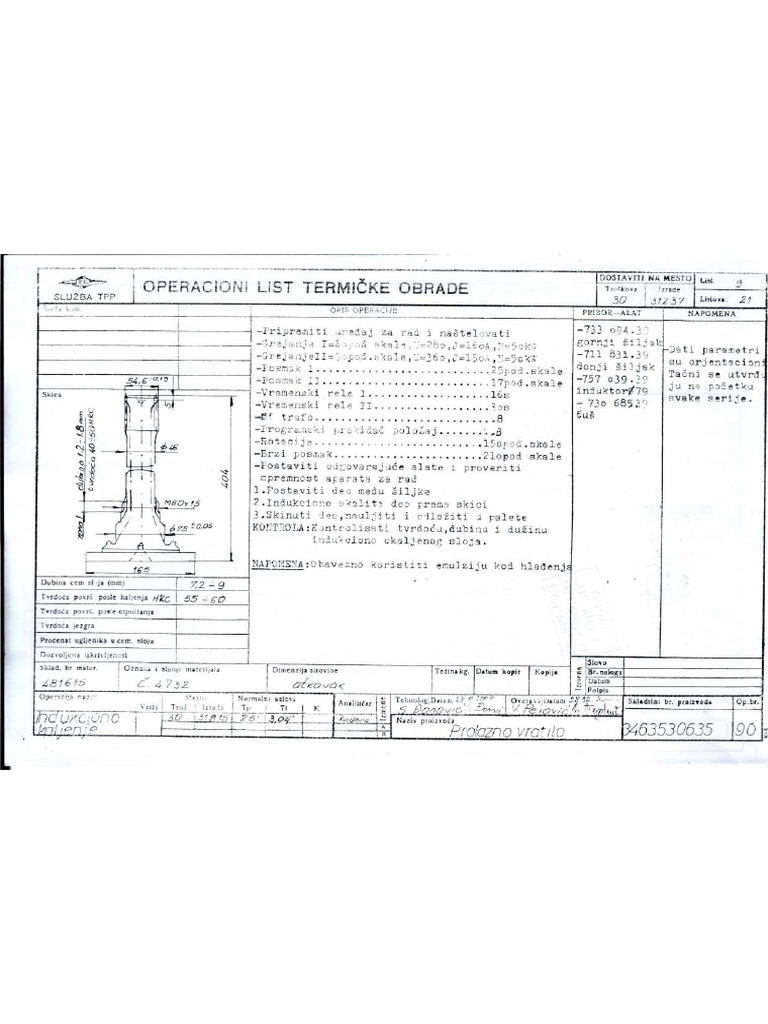 SLUŽBA TPP
OPERACIONI LIST TERMIČKE OBRADE
DOSTAVITI NA MESTO
Troškova
Izrade
30
31237
List 9
Listova: 21
OPIS OPERACIJE
PRIBOR-ALAT
NAPOMENA
-Pripremiti uređaj za rad i naštelovati
-Posmak I..............................25pod.skale
-Posmak II.............................17pod.skale
-Vremenski rele I......................16s
-Vremenski rele II
trafo..............................8
-Programski prekidač položaj
-Rotacije............................15opod.skale
-Brzi posmak.........................21opod skale
-Postaviti odgovarajuće alate i proveriti
spremnost aparata za rad
1.Postaviti deo među šiljke
2.Indukciono okaliti deo prema skici
3.Skinuti deo,nauljiti i odložiti u palete
KONTROLA:Kontrolisati tvrdoću,dubinu i dužinu
indukciono okaljenog sloja.
NAPOMENA:Obavezno koristiti emulziju kod hlađenja
-733 o94.39
gornji šiljak
-711 831.39
donji šiljak
-757 o39.39
induktor 179
- 73o 685.39
tuš
-Dati parametri
su orjentacioni
Tačni se utvrđu
ju na početku
svake serije.
Skica
54,6 -0,19
dubina 1,2-1,8 mm
tvrdoća 40÷60 HRC
M60x1,5
404
φ75 ±0,05
165
Dubina cem sloja (mm) 7,2-9
Tvrdoća površ. posle kaljenja HRC 55-60
Tvrdoća površ. posle otpuštanja
Tvrdoća jezgra
Procenat ugljenika u cem. sloju
Dozvoljena iskrivljenost
Sklad. br mater.
481615
Oznaka i stanje materijala
Č 4732
Dimenzija sirovine
otkovak
Težina kg.
Datum kopir
Kopija
Izmena
Slovo
Br. naloga
Datum
Potpis
Operacija naziv
Indukciono
kaljenje
Vrsta
Mesto
Troš
Izrada
30
Normalni uslovi
Tp
Tt
K
25'
3,04'
Analitičar
Tehnolog/Datum
Overava/Datum
Naziv proizvoda
Prolazno vratilo
Skladišni br. proizvoda
3463530635
Op.br.
90